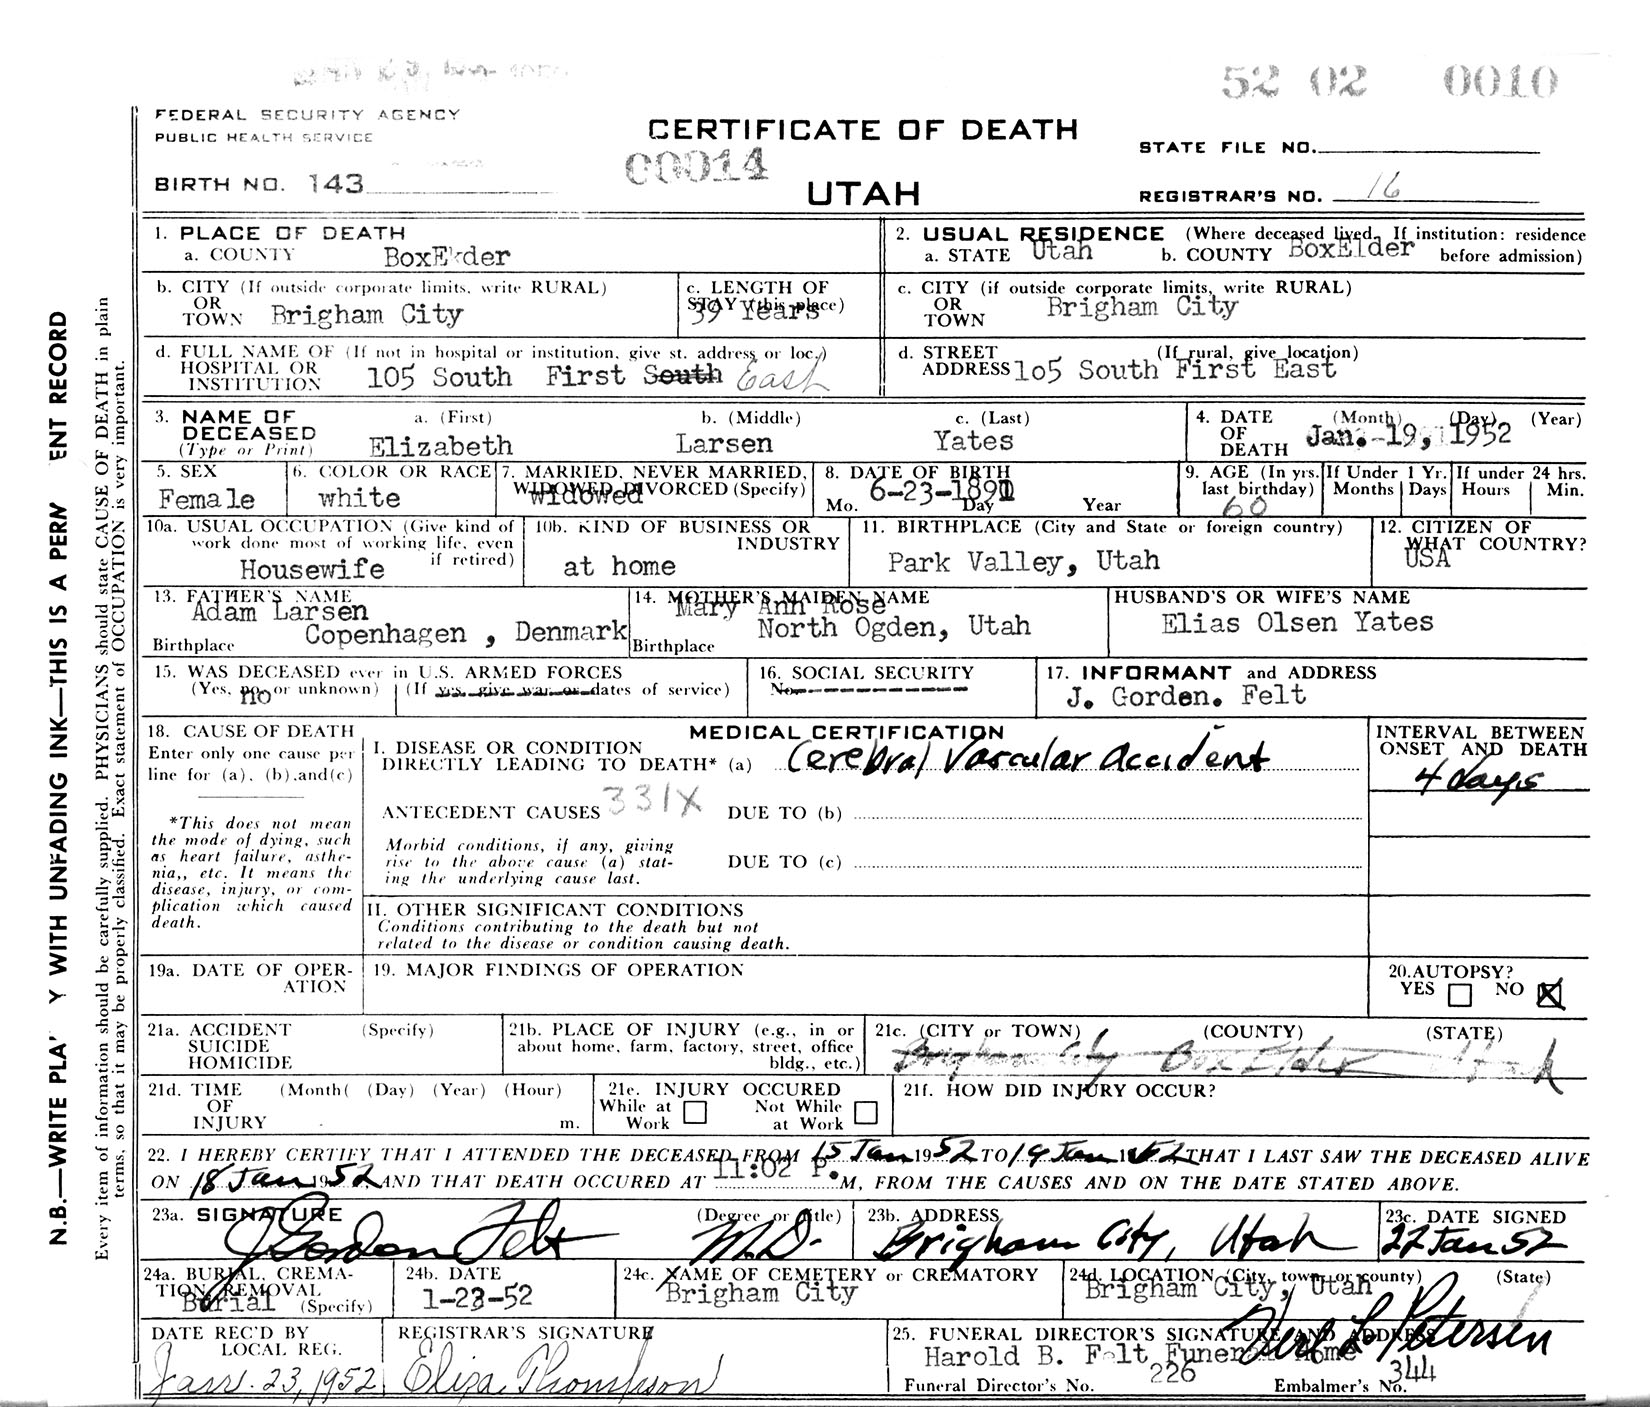 52 02 0010
FEDERAL SECURITY AGENCY
PUBLIC HEALTH SERVICE
CERTIFICATE OF DEATH
STATE FILE NO.
00014
BIRTH NO. 143
UTAH
REGISTRAR'S NO. 16
1. PLACE OF DEATH
a. COUNTY BoxElder
2. USUAL RESIDENCE (Where deceased lived. If institution: residence before admission)
a. STATE Utah b. COUNTY BoxElder
b. CITY (If outside corporate limits, write RURAL)
OR
TOWN Brigham City
c. LENGTH OF
STAY (this place)
39 Years
c. CITY (if outside corporate limits, write RURAL)
OR
TOWN Brigham City
d. FULL NAME OF (If not in hospital or institution, give st. address or loc.)
HOSPITAL OR
INSTITUTION 105 South First South East
d. STREET (If rural, give location)
ADDRESS 1o5 South First East
3. NAME OF
DECEASED
(Type or Print)
a. (First) b. (Middle) c. (Last)
Elizabeth Larsen Yates
4. DATE (Month) (Day) (Year)
OF
DEATH Jan. -19, 1952
5. SEX
Female
6. COLOR OR RACE
white
7. MARRIED, NEVER MARRIED,
WIDOWED, DIVORCED (Specify)
widowed
8. DATE OF BIRTH
6-23-1891
Mo. Day Year
9. AGE (In yrs. last birthday)
60
If Under 1 Yr. If under 24 hrs.
Months Days Hours Min.
10a. USUAL OCCUPATION (Give kind of
work done most of working life, even
if retired)
Housewife
10b. KIND OF BUSINESS OR
INDUSTRY
at home
11. BIRTHPLACE (City and State or foreign country)
Park Valley, Utah
12. CITIZEN OF
WHAT COUNTRY?
USA
13. FATHER'S NAME
Adam Larsen
Birthplace Copenhagen , Denmark
14. MOTHER'S MAIDEN NAME
Mary Ann Rose
Birthplace North Ogden, Utah
HUSBAND'S OR WIFE'S NAME
Elias Olsen Yates
15. WAS DECEASED ever in U.S. ARMED FORCES
(Yes, no or unknown) (If yes, give war or dates of service)
no
16. SOCIAL SECURITY
No.
17. INFORMANT and ADDRESS
J. Gorden. Felt
18. CAUSE OF DEATH
Enter only one cause per
line for (a), (b).and(c)
*This does not mean
the mode of dying, such
as heart failure, asthe-
nia,, etc. It means the
disease, injury, or com-
plication which caused
death.
MEDICAL CERTIFICATION
I. DISEASE OR CONDITION
DIRECTLY LEADING TO DEATH* (a) Cerebral Vascular Accident
INTERVAL BETWEEN
ONSET AND DEATH
4 days
ANTECEDENT CAUSES 331X DUE TO (b)
Morbid conditions, if any, giving
rise to the above cause (a) stat-
ing the underlying cause last.
DUE TO (c)
II. OTHER SIGNIFICANT CONDITIONS
Conditions contributing to the death but not
related to the disease or condition causing death.
19a. DATE OF OPER-
ATION
19. MAJOR FINDINGS OF OPERATION
20.AUTOPSY?
YES NO X
21a. ACCIDENT (Specify)
SUICIDE
HOMICIDE
21b. PLACE OF INJURY (e.g., in or
about home, farm, factory, street, office
bldg., etc.)
21c. (CITY or TOWN) (COUNTY) (STATE)
Brigham City Box Elder Utah
21d. TIME (Month( (Day) (Year) (Hour)
OF
INJURY m.
21e. INJURY OCCURED
While at Work Not While at Work
21f. HOW DID INJURY OCCUR?
22. I HEREBY CERTIFY THAT I ATTENDED THE DECEASED FROM 15 Jan 1952 TO 19 Jan 1952 THAT I LAST SAW THE DECEASED ALIVE
ON 18 Jan 1952, AND THAT DEATH OCCURED AT 11:02 P. M, FROM THE CAUSES AND ON THE DATE STATED ABOVE.
23a. SIGNATURE (Degree or title)
J Gordon Felt M.D.
23b. ADDRESS
Brigham City, Utah
23c. DATE SIGNED
22 Jan 52
24a. BURIAL, CREMA-
TION, REMOVAL
(Specify)
Burial
24b. DATE
1-23-52
24c. NAME OF CEMETERY or CREMATORY
Brigham City
24d. LOCATION (City, town or county) (State)
Brigham City, Utah
DATE REC'D BY
LOCAL REG.
Jan. 23, 1952
REGISTRAR'S SIGNATURE
Eliza Thompson
25. FUNERAL DIRECTOR'S SIGNATURE AND ADDRESS
Harold B. Felt Funeral Home
Verl L Petersen
Funeral Director's No. 226 Embalmer's No. 344
N.B.—WRITE PLA Y WITH UNFADING INK—THIS IS A PERM ENT RECORD
Every item of information should be carefully supplied. PHYSICIANS should state CAUSE OF DEATH in plain
terms, so that it may be properly classified. Exact statement of OCCUPATION is very important.